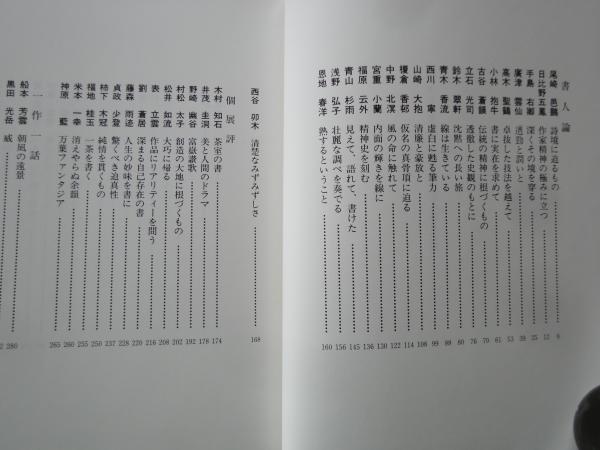 書人論
尾崎 邑鵬 詩境に迫るもの 6
日比野五鳳 作家精神の極みに立つ 12
手島 右卿 深くその境を穿る 25
廣津 雲仙 透徹と潤いと 39
高木 聖鶴 卓抜した技法を越えて 53
小林 抱牛 書に実在を求めて 61
古谷 蒼韻 伝統の精神に根づくもの 70
立石 光司 透徹した史観のもとに 76
鈴木 翠軒 沈黙への長い旅 80
青木 香流 線は生きている 89
西川 寧 虚白に甦る筆力 99
山崎 大抱 清廉と豪放と 108
榎倉 香邨 仮名の真骨頂に迫る 114
中野 北溟 風の命に触れて 122
宮重 小蘭 内面の輝きを線に 130
福原 云外 精神史を刻む 136
青山 杉雨 見えて、語れて、書けた 145
浅野 弘子 壮麗な調べを奏でる 156
恩地 春洋 熟するということ 160
西谷 卯木 清楚なみずみずしさ 168
個展評
木村 知石 茶室の書 174
井茂 圭洞 美と人間のドラマ 178
野崎 幽谷 富嶽讃歌 192
村松 太子 創造の大地に根づくもの 202
松井 如流 大巧に帰る 208
表 立雲 作品にリアリティーを問う 216
劉 蒼居 深まる自己存在の書 221
藤森 人生の妙味を書に 228
貞政 少登 驚くべき迫真性 237
柿下 木冠 純情を貫くもの 250
福地 桂玉 一茶を書く 255
米本 一幸 消えやらぬ余韻 260
神原 藍 万葉ファンタジア 265
一作一話
船本 芳雲 朝風の遠景 280
黒田 光岳 威